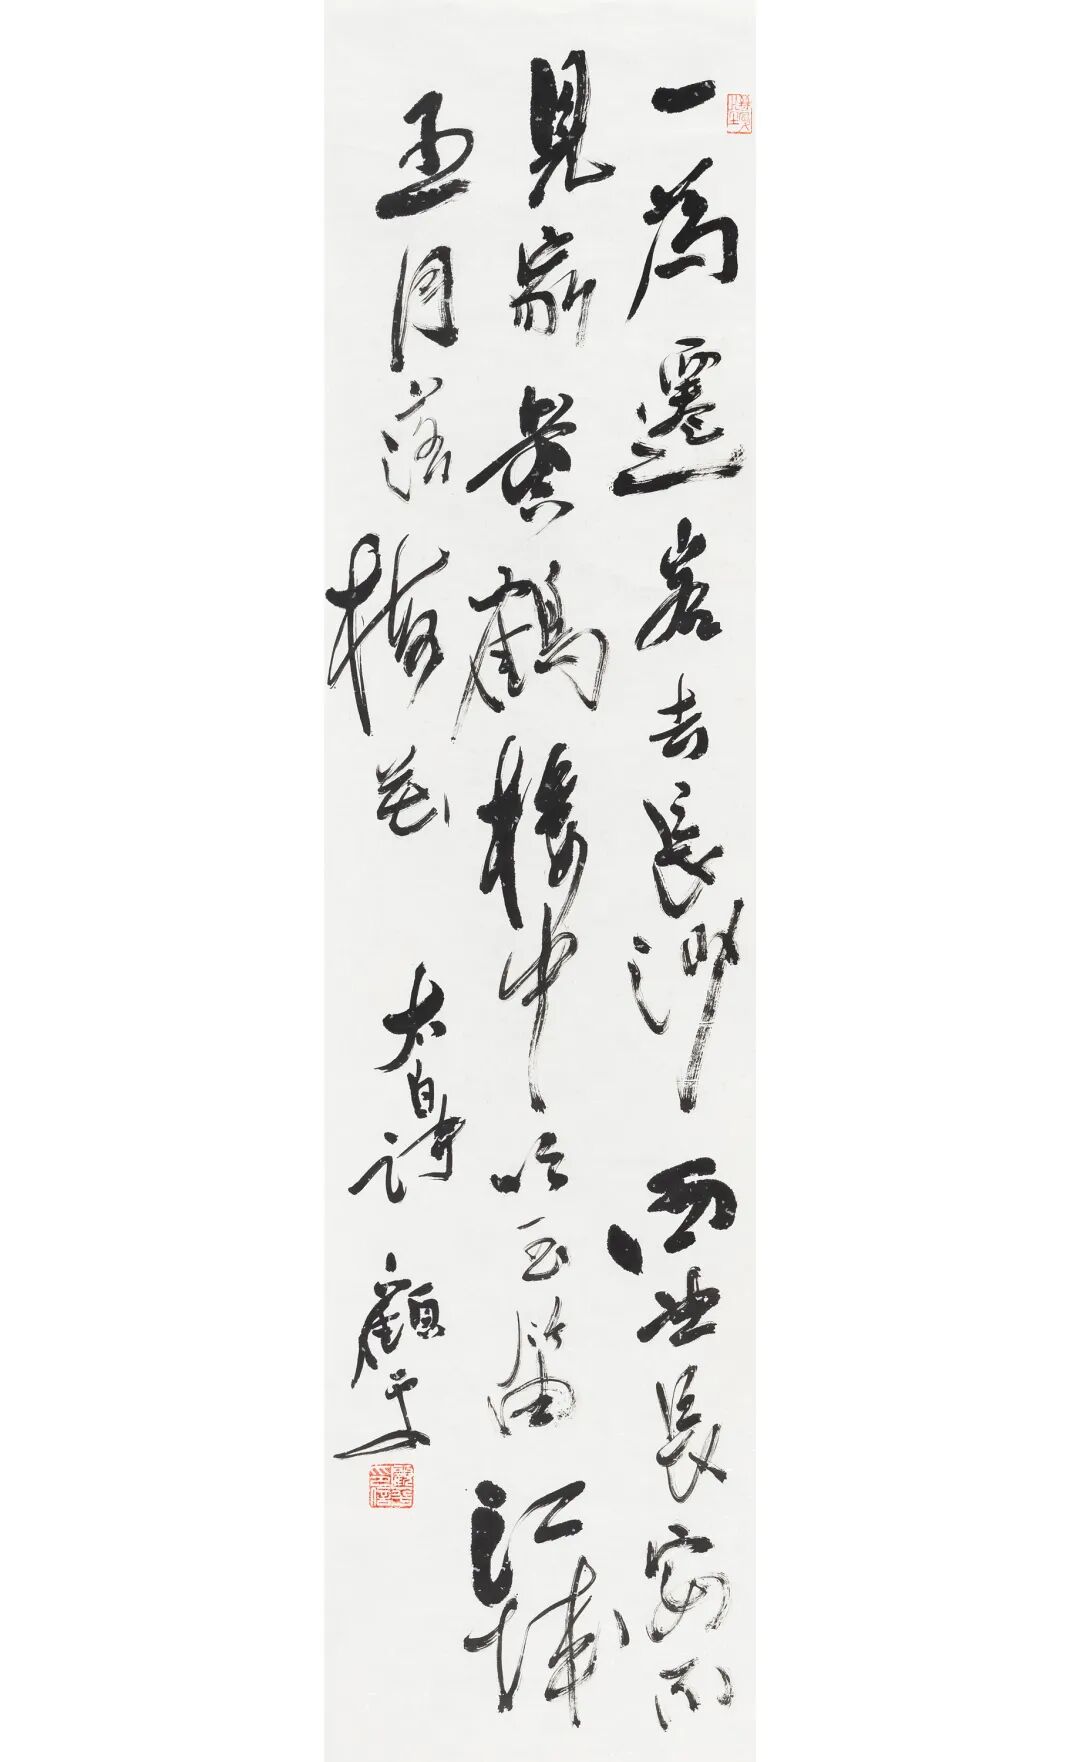 一為遷客去長沙西望長安不
見家黃鶴樓中吹玉笛江城
五月落梅花
太白詩 顧